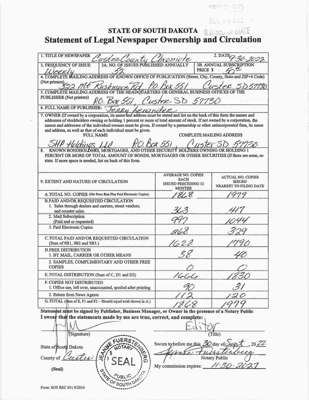 STATE OF SOUTH DAKOTA
Statement of Legal Newspaper Ownership and Circulation
1. TITLE OF NEWSPAPER Custer County Chronicle 2. DATE 9-30-2022
3. FREQUENCY OF ISSUE Weekly 3A. NO. OF ISSUES PUBLISHED ANNUALLY 52 3B. ANNUAL SUBSCRIPTION PRICE $
4. COMPLETE MAILING ADDRESS OF KNOWN OFFICE OF PUBLICATION (Street, City, County, State and ZIP+4 Code) (Not printers)
522 Mt Rushmore Rd PO Box 551 Custer SD 57730
5. COMPLETE MAILING ADDRESS OF THE HEADQUARTERS OR GENERAL BUSINESS OFFICES OF THE PUBLISHER (Not printers)
PO Box 551, Custer SD 57730
6. FULL NAME OF PUBLISHER:
7. OWNER (If owned by a corporation, its name and address must be stated and also the names and addresses of stockholders owning or holding 1 percent or more of total amount of stock. If not owned by a corporation, the names and addresses of the individual owners must be given. If owned by a partnership or other unincorporated firm, its name and address, as well as that of each individual must be given.
FULL NAME COMPLETE MAILING ADDRESS
SHP Holdings LLC PO Box 551 Custer SD 57730
8. KNOWN BONDHOLDERS, MORTGAGEES, AND OTHER SECURITY HOLDERS OWNING OR HOLDING 1 PERCENT OR MORE OF TOTAL AMOUNT OF BONDS, MORTGAGES OR OTHER SECURITIES (If there are none, so state. If more space is needed, list on back of this form.
9. EXTENT AND NATURE OF CIRCULATION AVERAGE NO. COPIES EACH ISSUED PRECEDING 12 MONTHS ACTUAL NO. COPIES ISSUED NEAREST TO FILING DATE
A. TOTAL NO. COPIES 1868 1979
B. PAID AND/OR REQUESTED CIRCULATION
1. Sales through dealers and carriers, street vendors, and counter sales. 363 417
2. Mail Subscription (Paid and or requested) 997 1044
3. Paid Electronic Copies 268 329
C. TOTAL PAID AND/OR REQUESTED CIRCULATION (Sum of 9B1, 9B2 and 9B3) 1628 1790
D. FREE DISTRIBUTION
1. BY MAIL, CARRIER OR OTHER MEANS 38 40
2. SAMPLES, COMPLIMENTARY AND OTHER FREE COPIES 0 0
E. TOTAL DISTRIBUTION (Sum of C, D1 and D2) 1666 1830
F. COPIES NOT DISTRIBUTED
1. Office use, left over, unaccounted, spoiled after printing 90 31
2. Return from News Agents 112 120
G. TOTAL (Sum of E, F1 and F2 - Should equal total shown in A.) 1868 1979
Statement must be signed by Publisher, Business Manager, or Owner in the presence of a Notary Public
I swear that the statements made by me are true, correct, and complete:
Editor
(Signature) (Title)
State of South Dakota Sworn to before me this 30 day of Sept, 2022
County of Custer Notary Public
(Seal) My commission expires: 11-30-2027
JEANNE FUERSTENBERG
NOTARY
SEAL
PUBLIC
STATE OF SOUTH DAKOTA
Form: SOS REC 051 9/2016